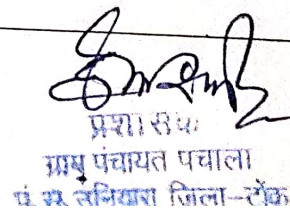 प्रशासक
ग्राम पंचायत पचाला
पं. स. उनियारा जिला-टोंक